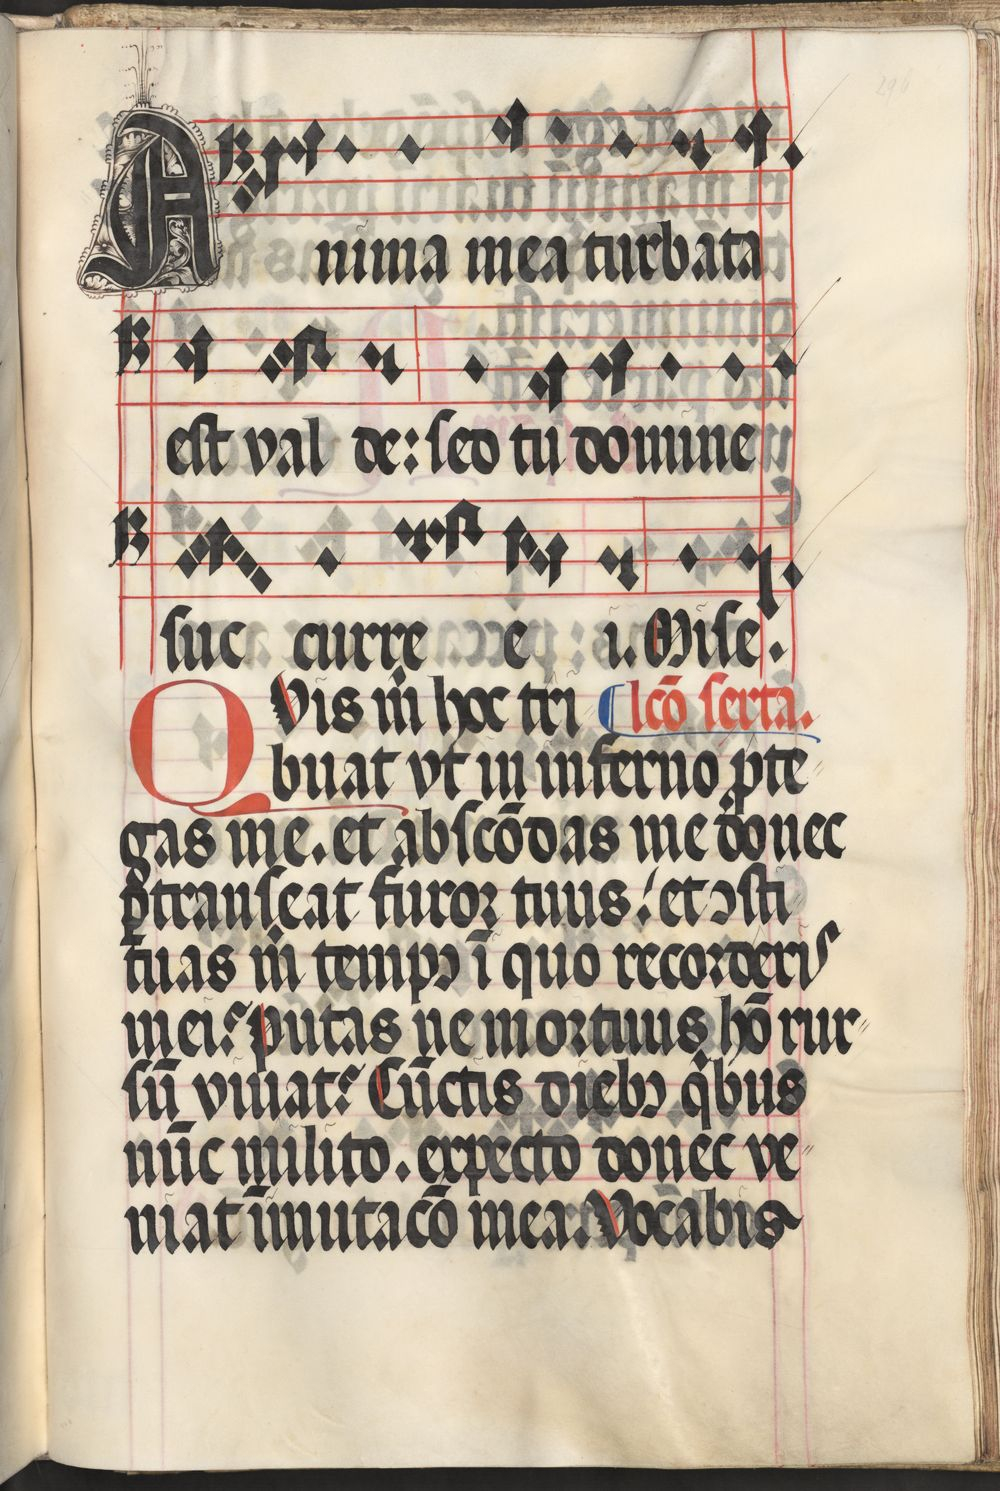 Anima mea turbata
est val de: sed tu domine
suc curre e i. Mise.
Quis m̄ hoc tri lcō serta.
buat vt in inferno ꝓte
gas me. et abscōdas me donec
ꝑtranseat furoꝛ tuus: et ↄsti
tuas m̄ tempꝰ ī quo recorderis
mei? Putas ne moꝛtuus hō rur
sū viuat? Cūctis diebꝰ qͥbus
nūc milito. expecto donec ve
niat īmutacō mea. Vocabis